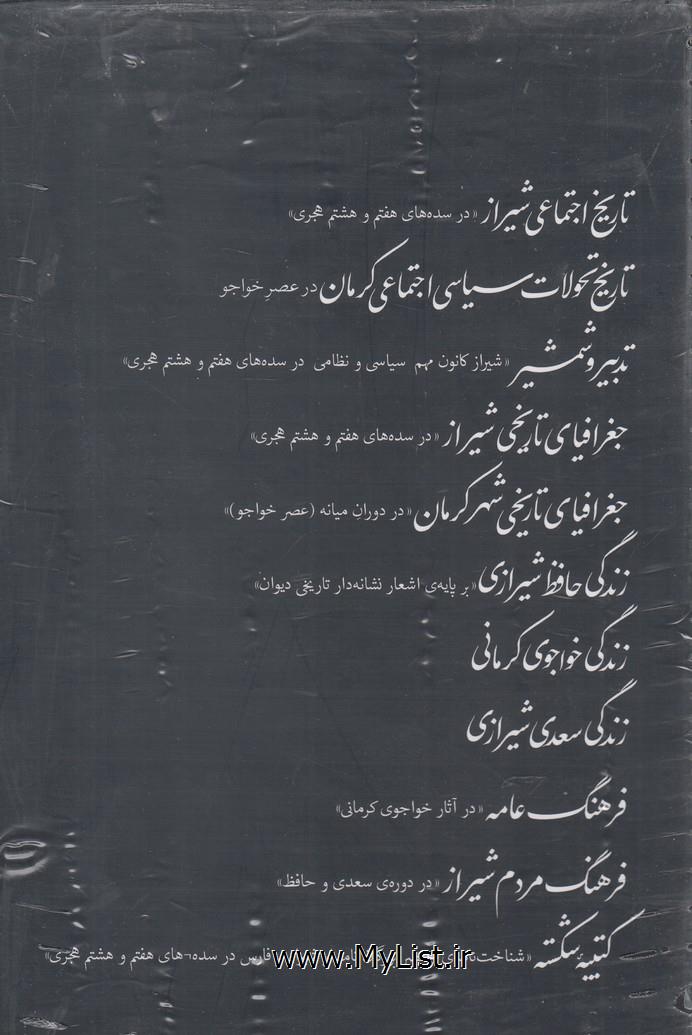 تاریخ اجتماعی شیراز «در سده‌های هفتم و هشتم هجری»
تاریخ تحولات سیاسی اجتماعی کرمان در عصرِ خواجو
تدبیر و شمشیر «شیراز کانون مهم سیاسی و نظامی در سده‌های هفتم و هشتم هجری»
جغرافیای تاریخی شیراز «در سده‌های هفتم و هشتم هجری»
جغرافیای تاریخی شهر کرمان «در دورانِ میانه (عصر خواجو)»
زندگی حافظ شیرازی «بر پایه‌ی اشعار نشانه‌دار تاریخی دیوان»
زندگی خواجوی کرمانی
زندگی سعدی شیرازی
فرهنگ عامه «در آثار خواجوی کرمانی»
فرهنگ مردم شیراز «در دوره‌ی سعدی و حافظ»
کتیبهٔ شکسته «شناخت فارس در سده¬های هفتم و هشتم هجری»
www.MyList.ir